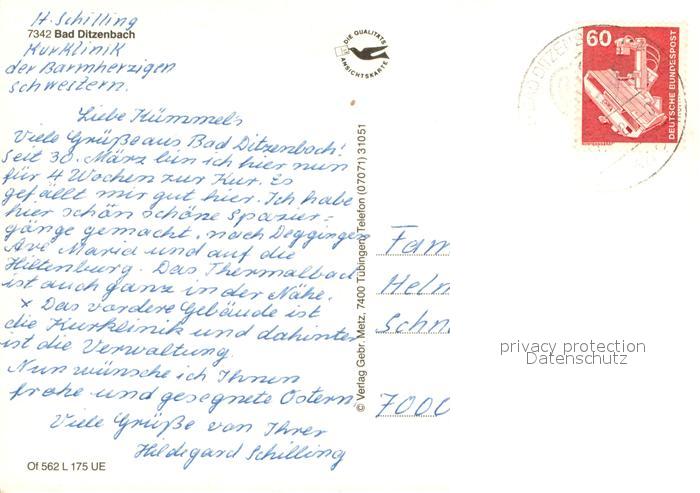 H. Schilling
7342 Bad Ditzenbach
Kurklinik
der Barmherzigen
Schwestern.
Liebe Kümmels
Viele Grüße aus Bad Ditzenbach!
Seit 30. März bin ich hier nun
für 4 Wochen zur Kur. Es
gefällt mir gut hier. Ich habe
hier schön schöne Spazier=
gänge gemacht, nach Deggingen
Ave Maria und auf die
Hiltenburg. Das Thermalbad
ist auch ganz in der Nähe.
x Das vordere Gebäude ist
die Kurklinik und dahinter
ist die Verwaltung.
Nun wünsche ich Ihnen
frohe und gesegnete Ostern
Viele Grüße von Ihrer
Hildegard Schilling
Of 562 L 175 UE
DIE QUALITÄTS
ANSICHTSKARTE
© Verlag Gebr. Metz, 7400 Tübingen, Telefon (07071) 31051
60
DEUTSCHE BUNDESPOST
BAD DITZENB
Fam
Helm
Schn
7000
privacy protection
Datenschutz